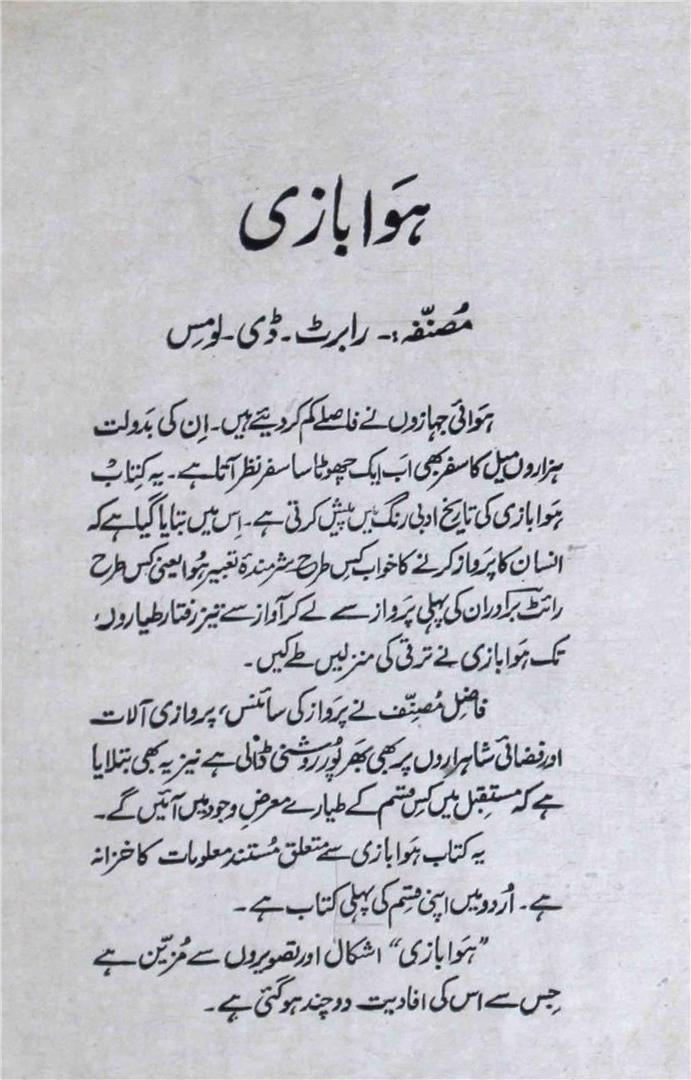 ہَوا بازی
مُصنّفہ:۔ رابرٹ۔ ڈی۔ لومِس
ہَوائی جہازوں نے فاصلے کم کر دیئے ہیں۔ اِن کی بَدولت
ہزاروں میل کا سفر بھی اَب ایک چھوٹا سا سفر نظر آتا ہے۔ یہ کِتابْ
ہَوا بازی کی تاریخ ادبی رنگ میں پیش کرتی ہے۔ اِس میں بتایا گیا ہے کہ
انسان کا پَرواز کرنے کا خواب کِس طرح شرمندۂ تعبیر ہُوا یعنی کِس طرح
رائٹ برادران کی پہلی پَرواز سے لے کر آواز سے تیز رفتار طیاروں
تک ہَوا بازی نے ترقی کی منزلیں طے کیں۔
فاضِل مُصنِّف نے پَرواز کی سائنس، پروازی آلات
اور فضائی شاہراروں پر بھی بھَرپُور روشنی ڈالی ہے نیز یہ بھی بتلایا
ہے کہ مستقبل میں کِس قِسم کے طیارے معرضِ وجود میں آئیں گے۔
یہ کتاب ہَوا بازی سے متعلق مُستند معلومات کا خزانہ
ہے۔ اُردو میں اپنی قِسم کی پہلی کتاب ہے۔
”ہَوا بازی“ اشکال اور تصویروں سے مُزیّن ہے
جِس سے اس کی افادیت دو چند ہو گئی ہے۔